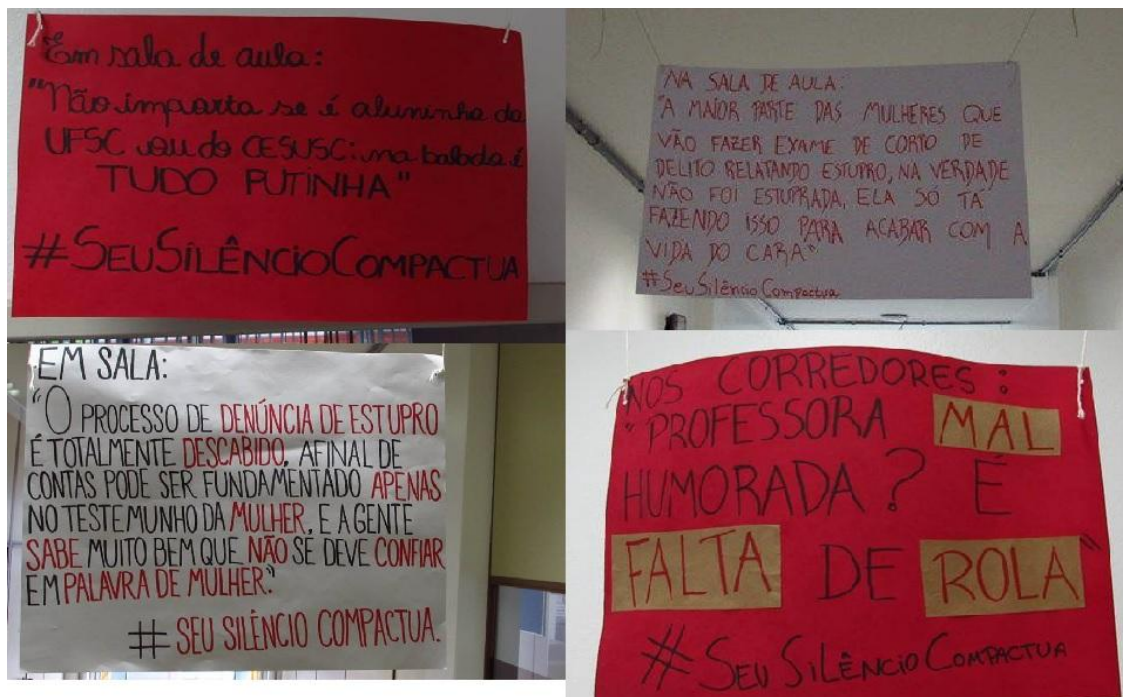 Em sala de aula:
"Não importa se é aluninha da
UFSC ou do CESUSC: na balada é
TUDO PUTINHA"
#SEUSILÊNCIOCOMPACTUA
NA SALA DE AULA:
"A MAIOR PARTE DAS MULHERES QUE
VÃO FAZER EXAME DE CORTO DE
DELITO RELATANDO ESTUPRO, NA VERDADE
NÃO FOI ESTUPRADA, ELA SÓ TÁ
FAZENDO ISSO PARA ACABAR COM A
VIDA DO CARA"
#SeuSilêncioCompactua
EM SALA:
"O PROCESSO DE DENÚNCIA DE ESTUPRO
É TOTALMENTE DESCABIDO, AFINAL DE
CONTAS PODE SER FUNDAMENTADO APENAS
NO TESTEMUNHO DA MULHER, E A GENTE
SABE MUITO BEM QUE NÃO SE DEVE CONFIAR
EM PALAVRA DE MULHER."
# SEU SILÊNCIO COMPACTUA.
NOS CORREDORES:
"PROFESSORA MAL
HUMORADA? É
FALTA DE ROLA"
#SEUSILÊNCIOCOMPACTUA